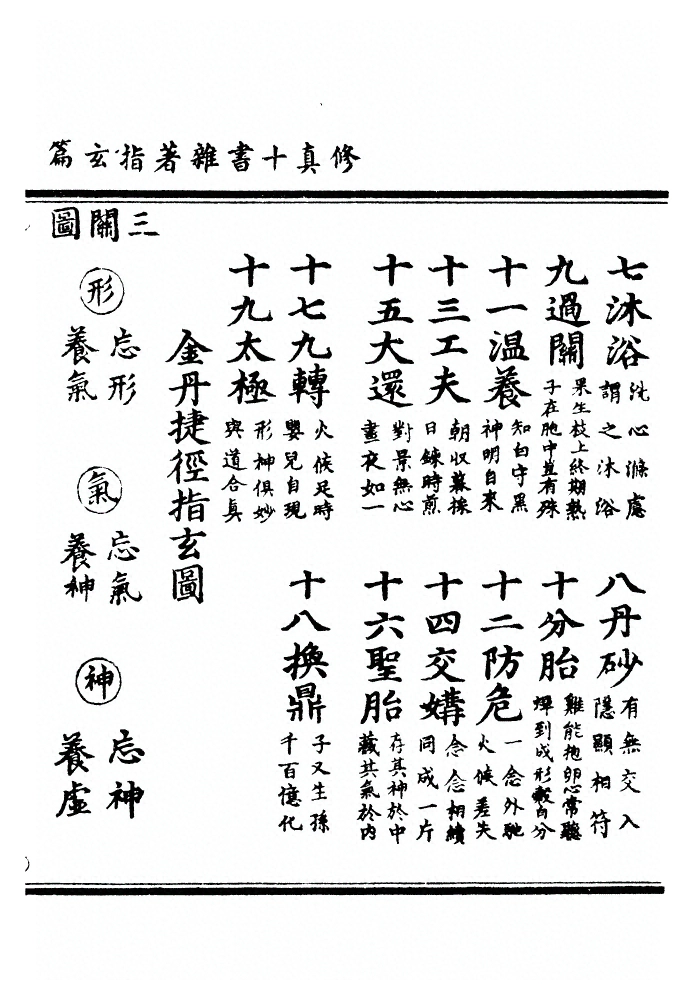 修真十書雜著指玄篇
七沐浴
洗心滌慮
謂之沐浴
八丹砂
有無交入
隱顯相符
九過關
果生枝上終期熟
子在胞中豈有殊
十分胎
雞能抱卵心常聽
蟬到成形殼自分
十一温養
知白守黑
神明自來
十二防危
一念外馳
火候差失
十三工夫
朝收暮採
日鍊時煎
十四交媾
念念相續
同成一片
十五大還
對景無心
晝夜如一
十六聖胎
存其神於中
藏其氣於内
十七九轉
火候足時
嬰兒自現
十八換鼎
子又生孫
千百憶化
十九太極
形神俱妙
與道合真
金丹捷徑指玄圖
三關圖
形
忘形
養氣
氣
忘氣
養神
神
忘神
養虛